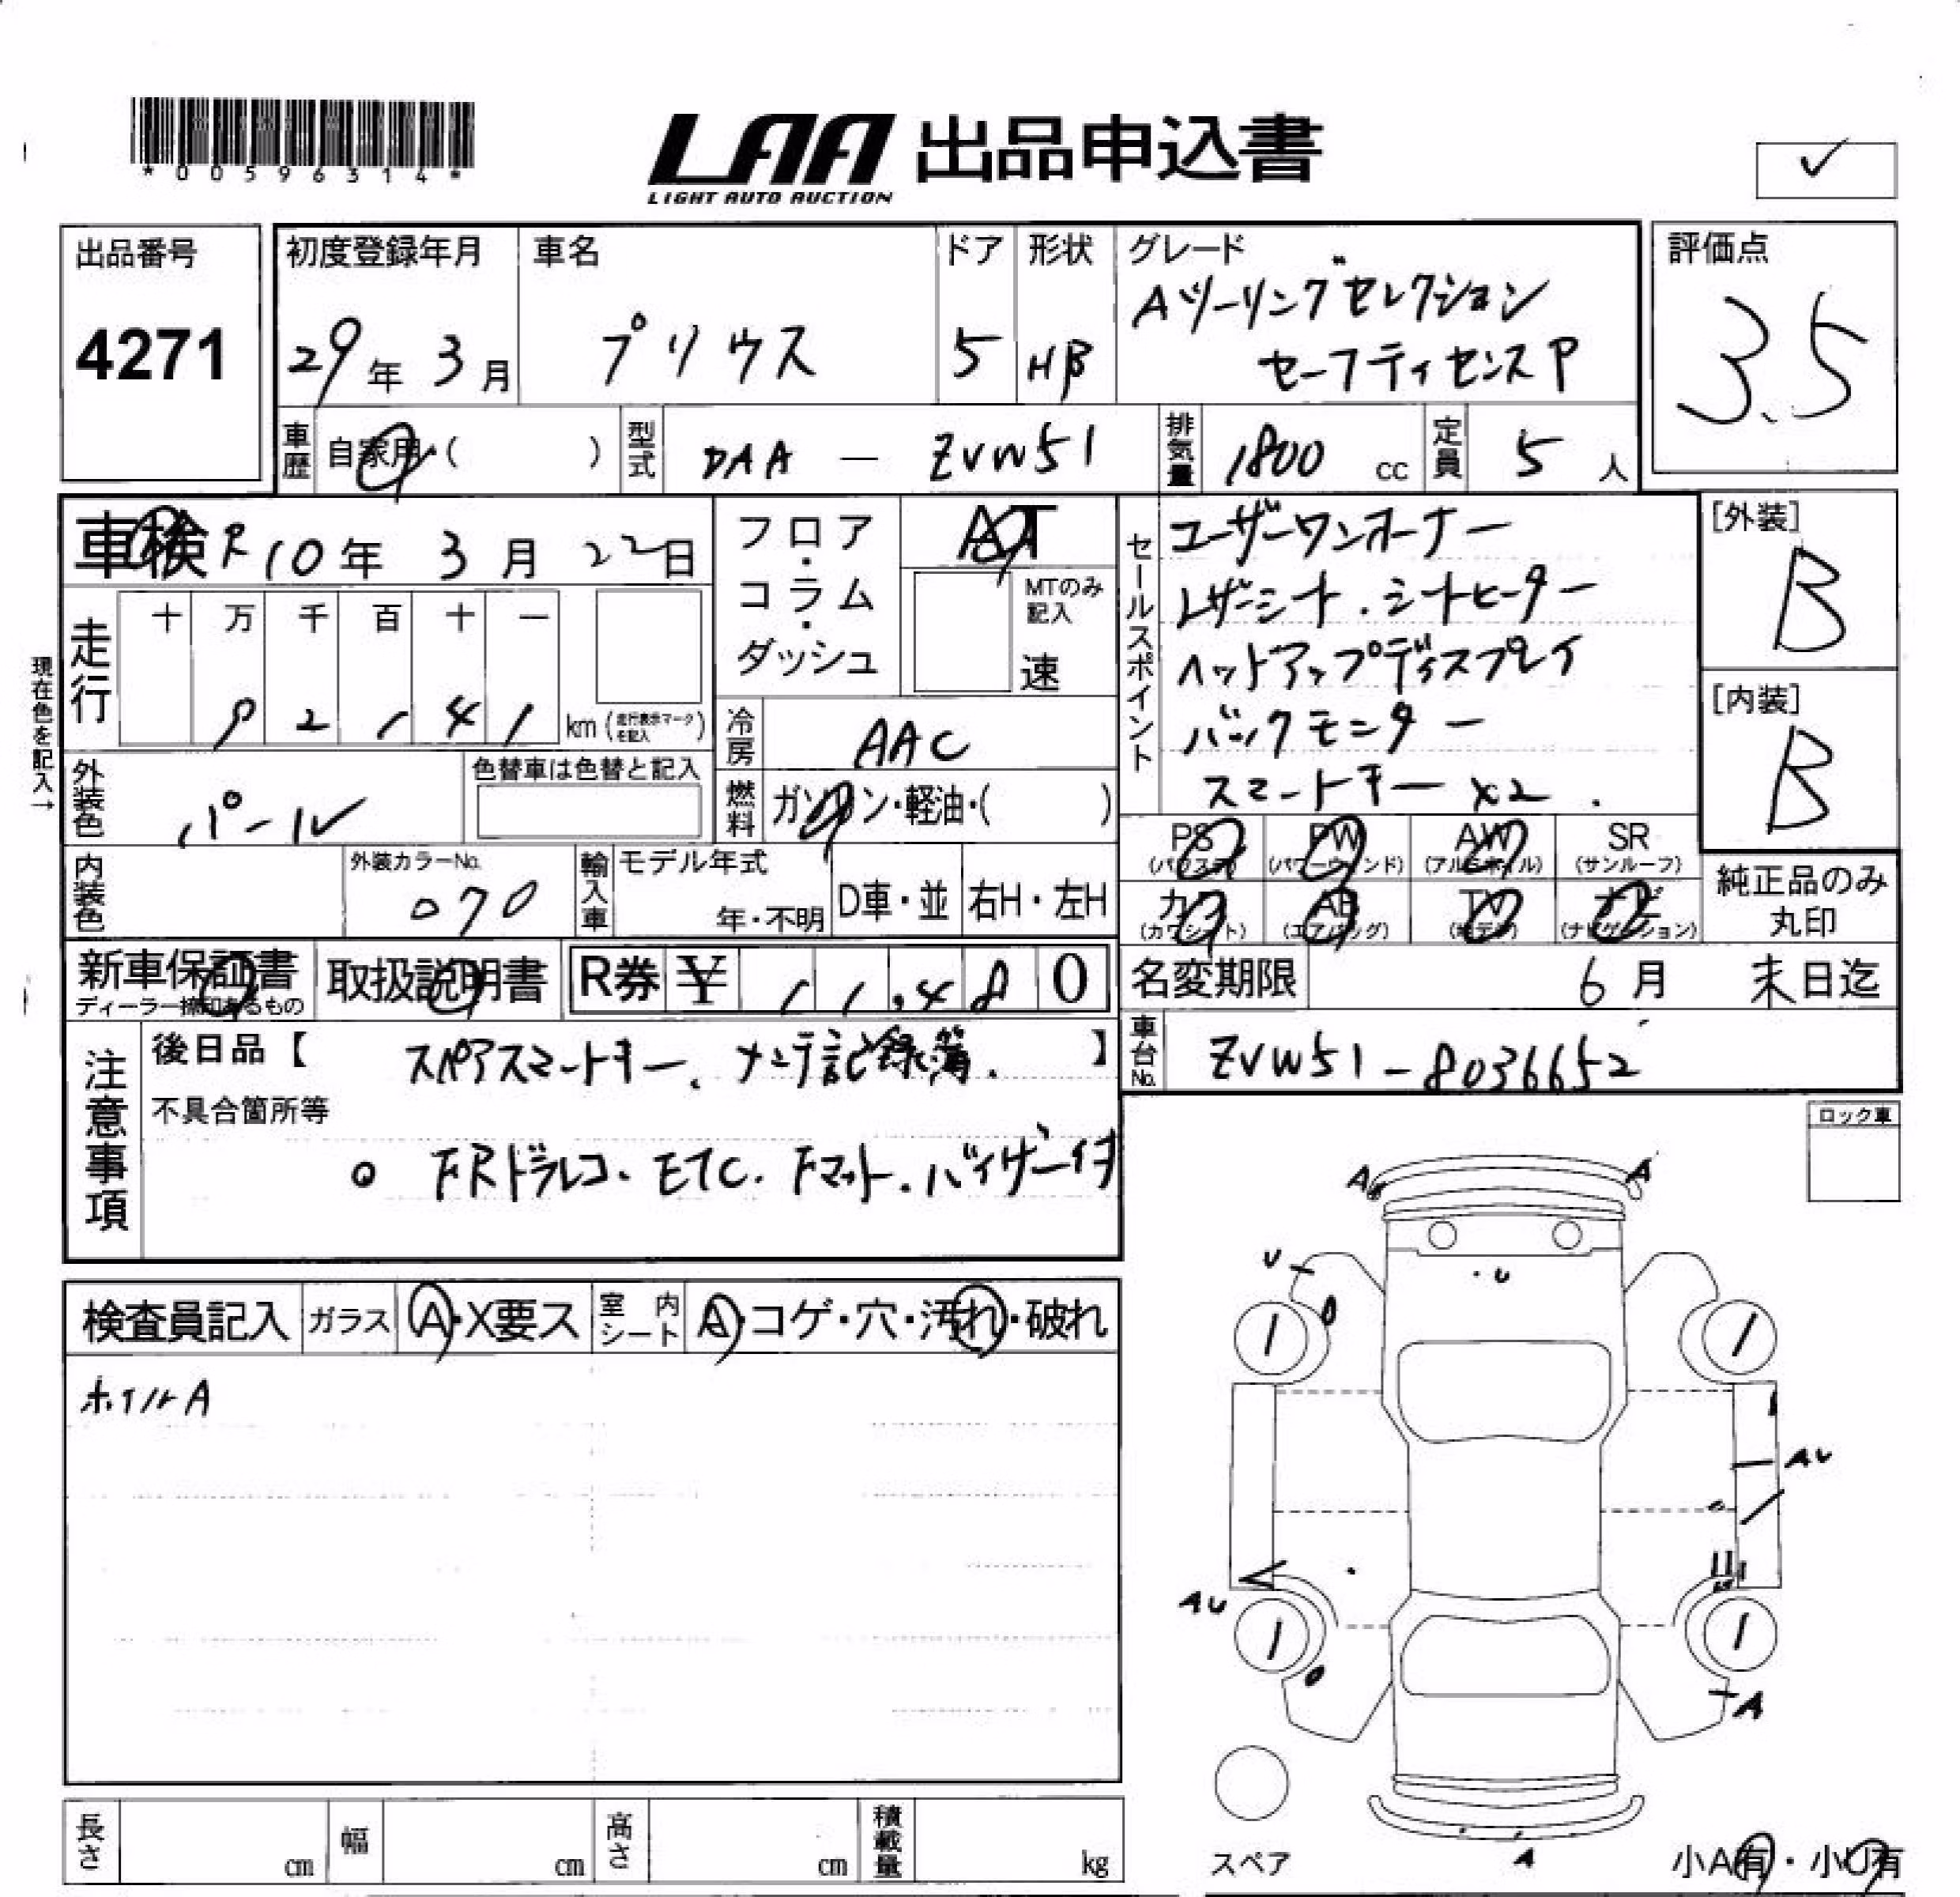 *00596314*
LAA 出品申込書
LIGHT AUTO AUCTION
✓
出品番号
4271
初度登録年月
29年 3月
車名
プリウス
ドア
5
形状
HB
グレード
Aツーリングセレクション
セーフティセンスP
評価点
3.5
車歴
自家用・( )
型式
DAA — ZVW51
排気量
1800 cc
定員
5 人
車検 R10年 3月 22日
フロア・コラム・ダッシュ
AT
MTのみ記入
速
セールスポイント
ユーザーワンオーナー
レザーシート.シートヒーター
ヘッドアップディスプレイ
バックモニター
スマートキー x2.
[外装]
B
[内装]
B
現在色を記入→
走行
十 万 千 百 十 一
9 2 1 4 1 km (走行表示マークを記入)
冷房
AAC
外装色
パール
色替車は色替と記入
燃料
ガソリン・軽油・( )
内装色
外装カラーNo.
070
輸入車
モデル年式
年・不明
D車・並
右H・左H
PS (パワステ)
PW (パワーウィンド)
AW (アルミホイル)
SR (サンルーフ)
カワ (カワシート)
AB (エアバッグ)
TV (テレビ)
ナビ (ナビゲーション)
純正品のみ丸印
新車保証書
ディーラー捺印あるもの
取扱説明書
R券 ¥ 11,480
名変期限 6月 末日迄
注意事項
後日品【 スペアスマートキー、ナンテ記録簿. 】
車台No.
ZVW51-8036652
不具合箇所等
o FRドラレコ. ETC. Fマット.バイザー付
ロック車
A A
U
・U
検査員記入
ガラス
A・X要ス
室内シート
A・コゲ・穴・汚れ・破れ
ホイルA
AU
AU
A
A
長さ cm
幅 cm
高さ cm
積載量 kg
スペア
小A有・小U有